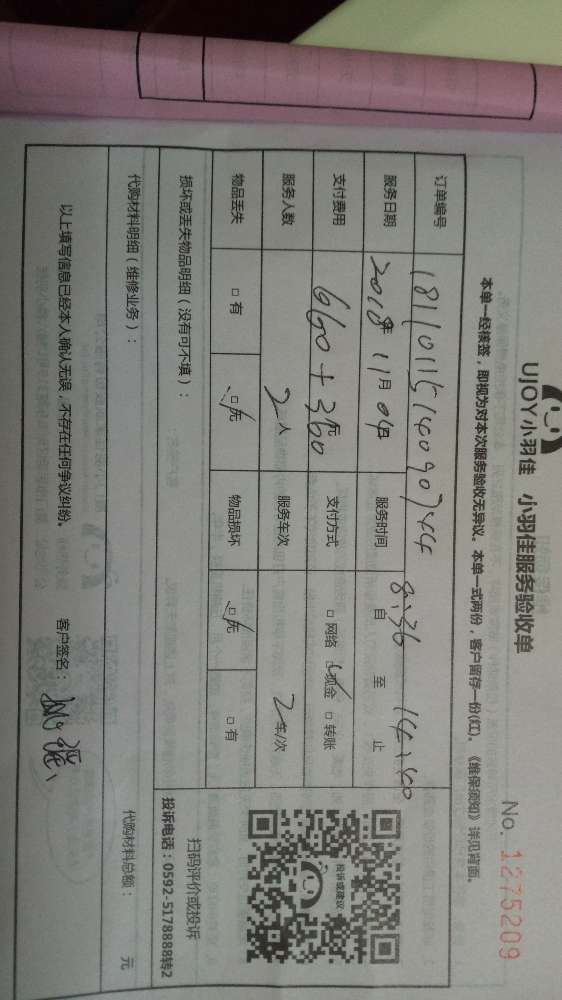 UJOY小羽佳 小羽佳服务验收单
No. 1275209
本单一经核签，即视为对本次服务验收无异议。本单一式两份，客户留存一份(红)。《维保须知》详见背面。
订单编号 1811011514090744
服务日期 2018年11月04日 服务时间 8:36 自 至 14:40 止
支付费用 660+360元 支付方式 □网络 ☑现金 □转账
服务人数 2人 服务车次 2车/次
物品丢失 □有 ☑无 物品损坏 ☑无 □有
损坏或丢失物品明细（没有可不填）：
投诉或建议
扫码评价或投诉
投诉电话：0592-5178888转2
代购材料明细（维修业务）： 代购材料总额： 元
以上填写信息已经本人确认无误，不存在任何争议纠纷。 客户签名：